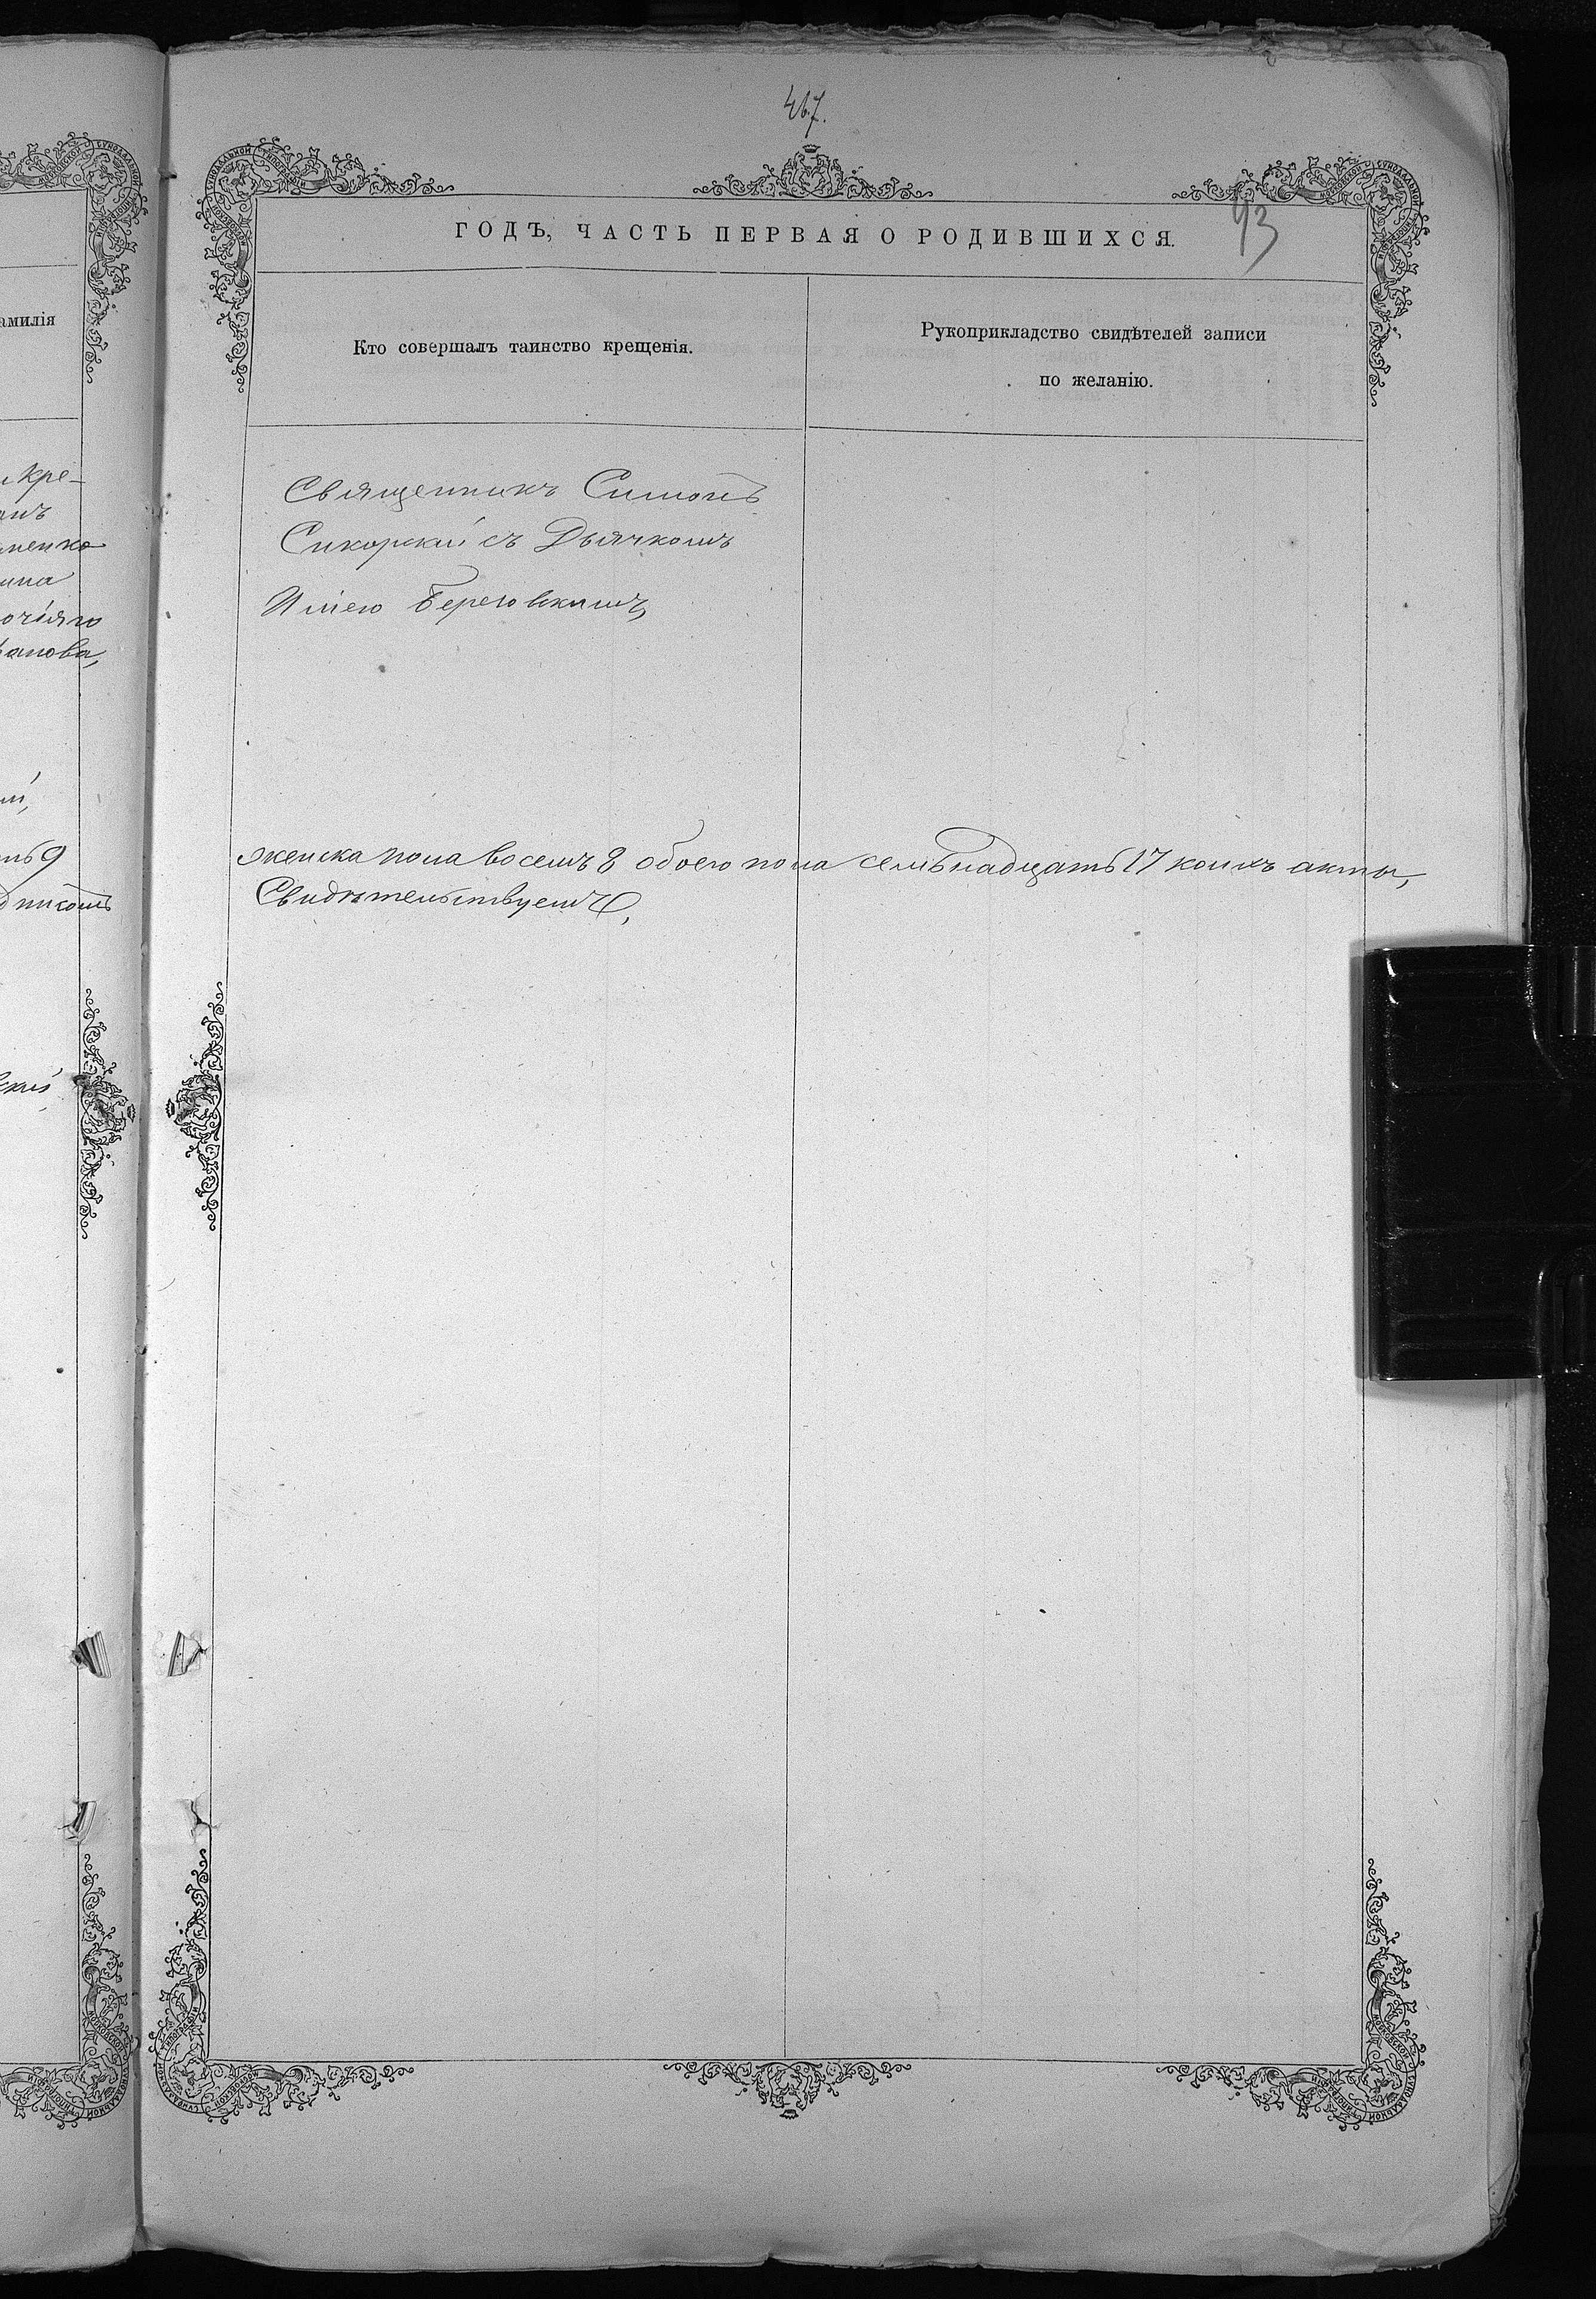 467.
93
ГОДЪ, ЧАСТЬ ПЕРВАЯ О РОДИВШИХСЯ.
амилія
Кто совершалъ таинство крещенія.
Рукоприкладство свидѣтелей записи
по желанію.
Священникъ Симонъ
Сикорскій съ Дьячкомъ
Иліею Береговскимъ,
женска пола восемъ 8 обоего пола семьнадцать 17 коихъ акты,
Свидѣтельствуемъ,